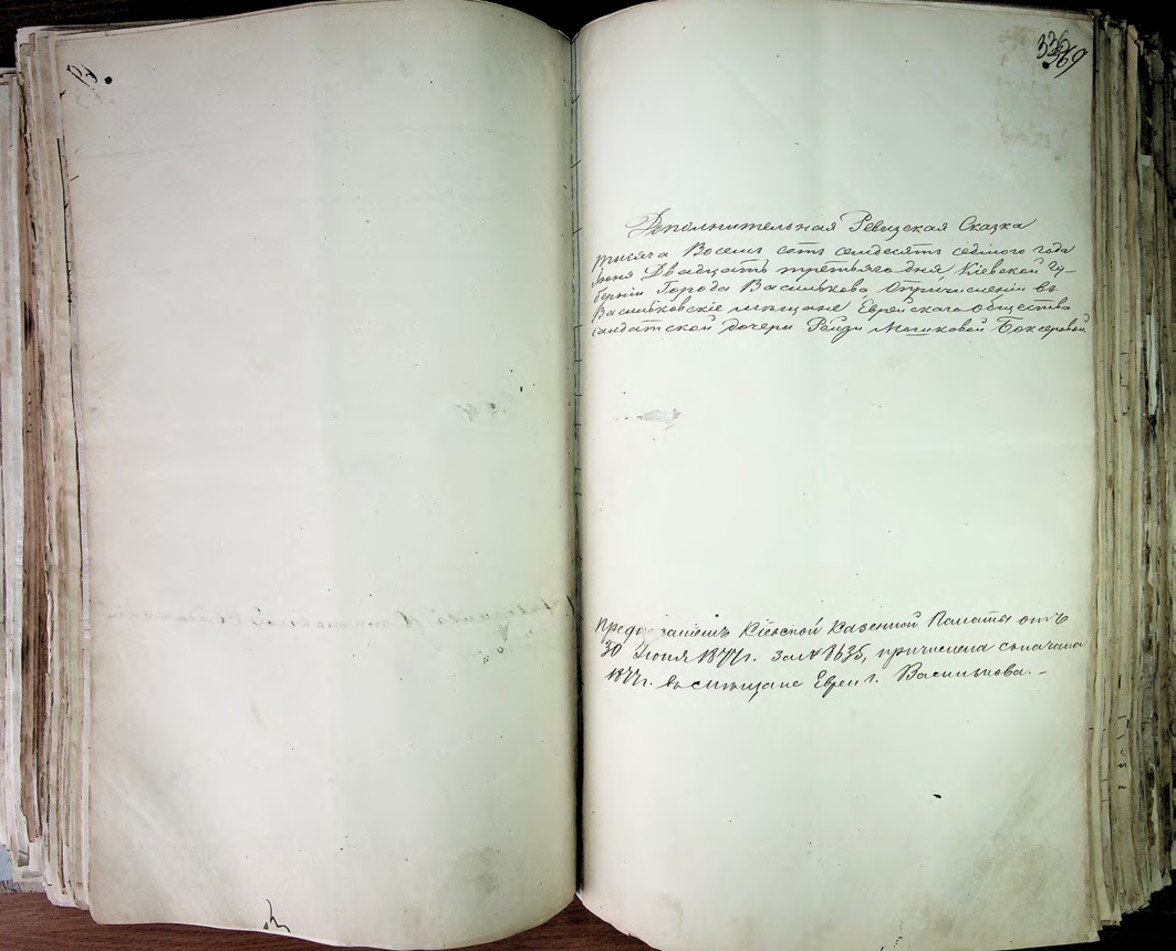 336
369
Дополнительная Ревизская Сказка
тысяча Восемь сотъ семдесятъ седмого года
Іюня Двадцать третьяго дня Кіевской Гу-
берніи Города Василькова Опричисленіи въ
Васильковскіе мѣщане Еврейскаго Общества
солдатской дочери Рейзи Мошковой Боксеровой.
Предписаніемъ Кіевской Казенной Палаты отъ
30 Іюня 1877г. за № 8635, причислена сначала
1877г. въ мѣщане Евреи г. Василькова. -